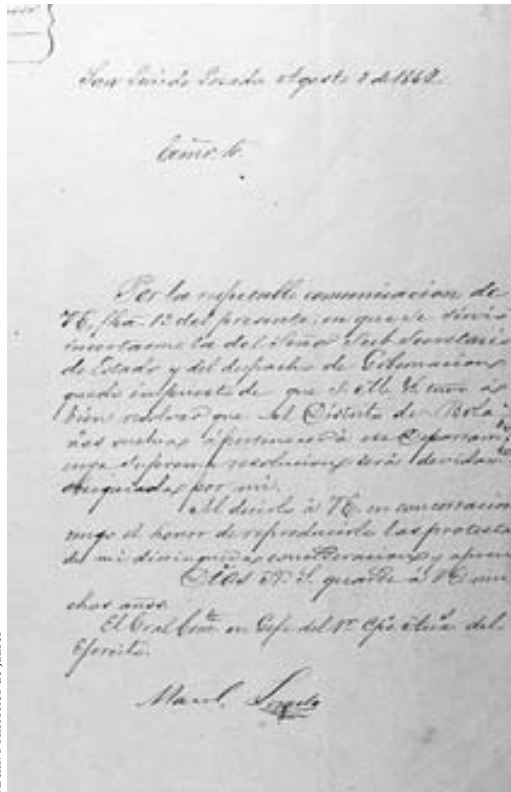 San Luis de Lozada Agosto 3 de 1868.
Exmo. Sr.
Por la respetable comunicacion de
VE. fha. 1º del presente, en que se sirvió
insertarme la del Señor Sub Secretario
de Estado y del despacho de Gobernacion
quedo impuesto de que S. M. tuvo á
bien resolver que el Distrito de Bola
ños vuelva á pertenecer á ese Departam
suprema resolucion será devidam
por mi.
Al decirlo á VE. en contestacion
tengo el honor de reproducirle las protestas
de mi distinguida consideracion y aprecio
Dios N. S. guarde á VE. mu
chos años.
El Gral. en Gefe del 1er. del
Ejercito.
Manl. Lozada